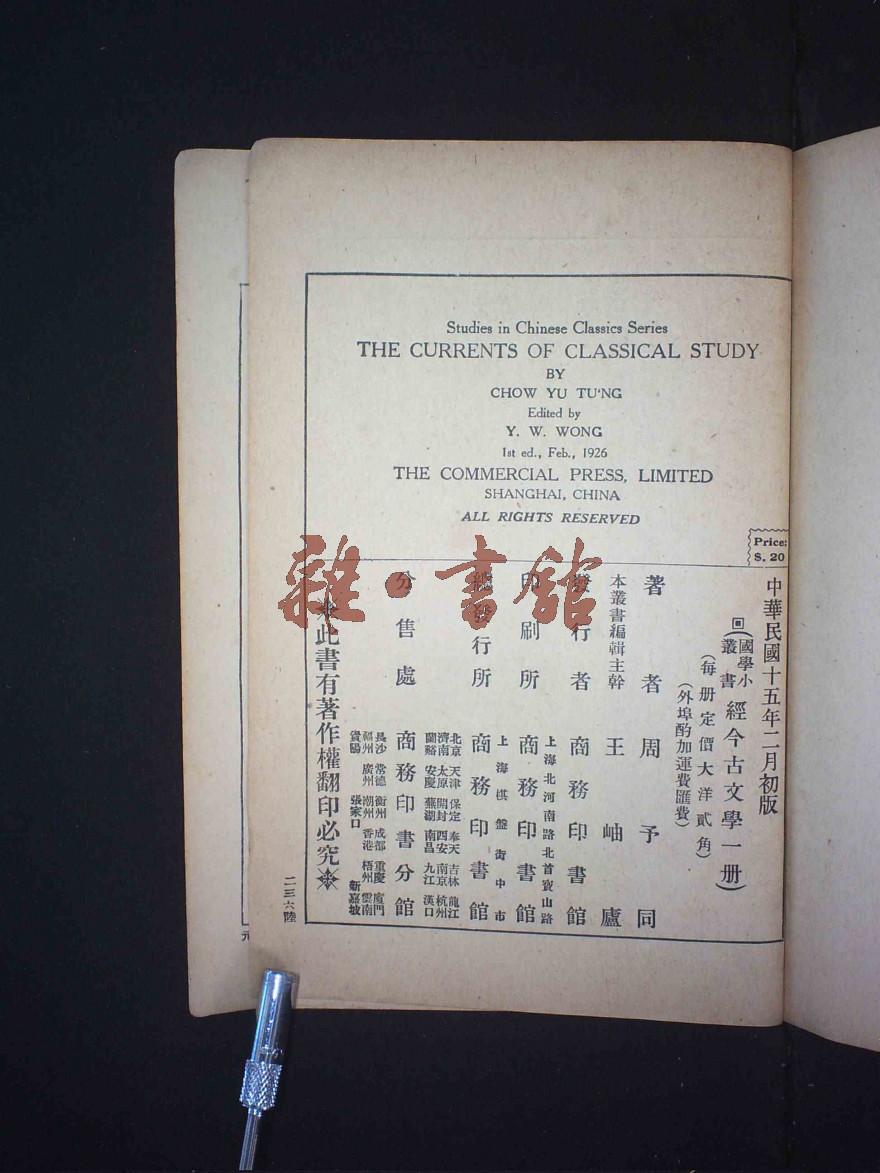 Studies in Chinese Classics Series
THE CURRENTS OF CLASSICAL STUDY
BY
CHOW YU TU'NG
Edited by
Y. W. WONG
1st ed., Feb., 1926
THE COMMERCIAL PRESS, LIMITED
SHANGHAI, CHINA
ALL RIGHTS RESERVED
Price:
$. 20
雜·書館
中華民國十五年二月初版
回(國學小叢書經今古文學一册)
(每册定價大洋貳角)
(外埠酌加運費匯費)
著者 周予同
本叢書編輯主幹 王岫廬
發行者 商務印書館
上海北河南路北首寶山路
印刷所 商務印書館
上海棋盤街中市
總發行所 商務印書館
北京 天津 保定 奉天 吉林 龍江
濟南 太原 開封 西安 南京 杭州
蘭谿 安慶 蕪湖 南昌 九江 漢口
分售處 商務印書分館
長沙 常德 衡州 成都 重慶 廈門
福州 廣州 潮州 香港 梧州 雲南
貴陽 張家口 新嘉坡
此書有著作權翻印必究
二三六陸
元